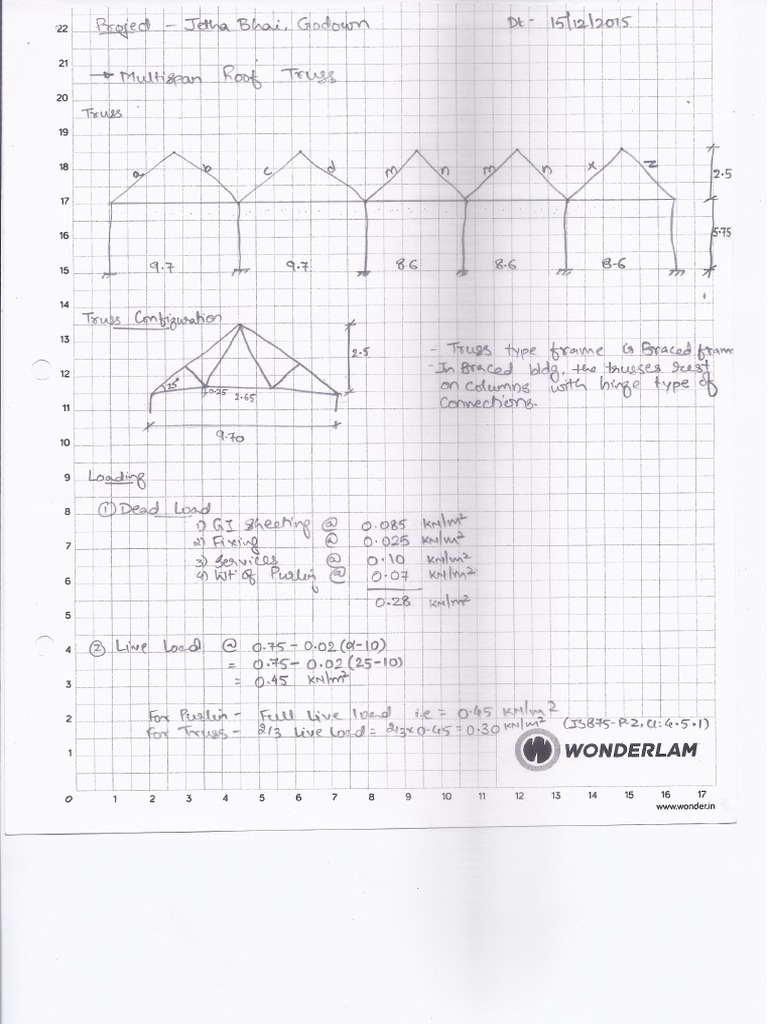 Project - Jetha Bhai, Godown
Dt- 15/12/2015
→ Multispan Roof Truss
Truss
a b c d m n m n x z
2.5
5.75
9.7 9.7 8.6 8.6 8.6
Truss Configuration
2.5
25°
0.25
2.65
9.70
- Truss type frame is Braced frame
- In Braced bldg, the trusses rest
on columns with hinge type of
connections.
Loading
① Dead Load
1) GI Sheeting @ 0.085 KN/m²
2) Fixing @ 0.025 KN/m²
3) Services @ 0.10 KN/m²
4) Wt of Purlin @ 0.07 KN/m²
0.28 KN/m²
② Live Load @ 0.75 - 0.02(α-10)
= 0.75 - 0.02(25-10)
= 0.45 KN/m²
For Purlin - Full live load i.e = 0.45 KN/m²
For Truss - 2/3 Live Load = 2/3x0.45 = 0.30 KN/m² (IS875-P-2, Cl: 4.5.1)
WONDERLAM
www.wonder.in
22
21
20
19
18
17
16
15
14
13
12
11
10
9
8
7
6
5
4
3
2
1
0 1 2 3 4 5 6 7 8 9 10 11 12 13 14 15 16 17